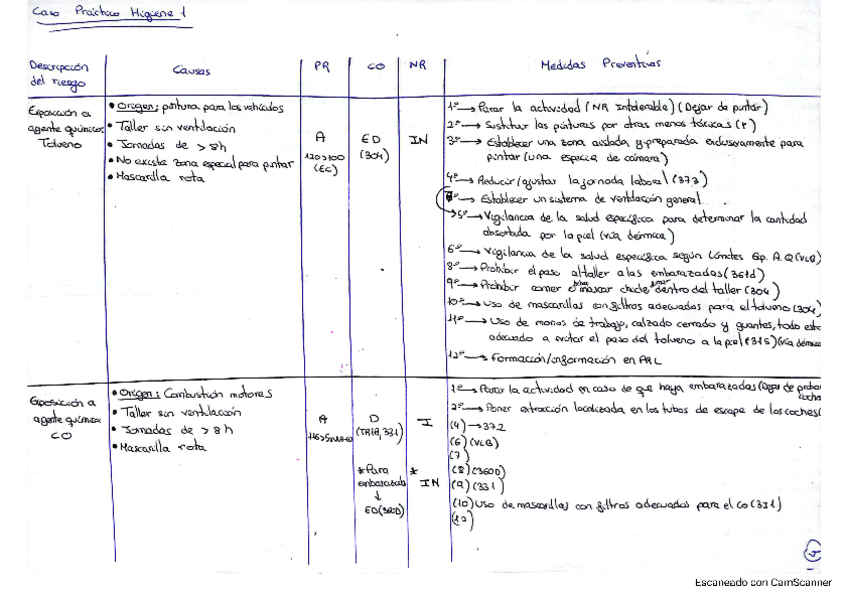 Caso Práctico Higiene 1
Descripción del riesgo
Causas
PR
CO
NR
Medidas Preventivas
Exposición a agente químico: Tolueno
• Origen: pintura para los vehículos
• Taller sin ventilación
• Jornadas de > 8h
• No existe zona especial para pintar
• Mascarilla rota
A
120>100
(EC)
ED
(304)
IN
1º → Parar la actividad (NR Intolerable) (Dejar de pintar)
2º → Sustituir las pinturas por otras menos tóxicas (r)
3º → Establecer una zona aislada y preparada exclusivamente para
pintar (una especie de cámara)
4º → Reducir/ajustar la jornada laboral (373)
→ Establecer un sistema de ventilación general
5º → Vigilancia de la salud específica para determinar la cantidad
absorbida por la piel (vía dérmica)
6º → Vigilancia de la salud específica según Límites Exp. A.Q (VLB)
8º → Prohibir el paso al taller a las embarazadas (361d)
9º → Prohibir comer o mascar chicle dentro del taller (304)
10º → Uso de mascarillas con filtros adecuados para el tolueno (304)
11º → Uso de monos de trabajo, calzado cerrado y guantes, todo esto
adecuado a evitar el paso del tolueno a la piel (315) (vía dérmica
12º → Formación/información en PRL
Exposición a agente químico: CO
• Origen: Combustión motores
• Taller sin ventilación
• Jornadas de > 8h
• Mascarilla rota
A
D
(TR1B, 331)
I
* Para embarazada
↓
ED (360D)
* IN
1º → Parar la actividad en caso de que haya embarazadas (Dejar de probar
coches
2º → Poner extracción localizada en los tubos de escape de los coches (
(4) → 372
(6) (VLB)
(7)
(8) (360D)
(9) (331)
(10) Uso de mascarillas con filtros adecuados para el CO (331)
(12)
Escaneado con CamScanner